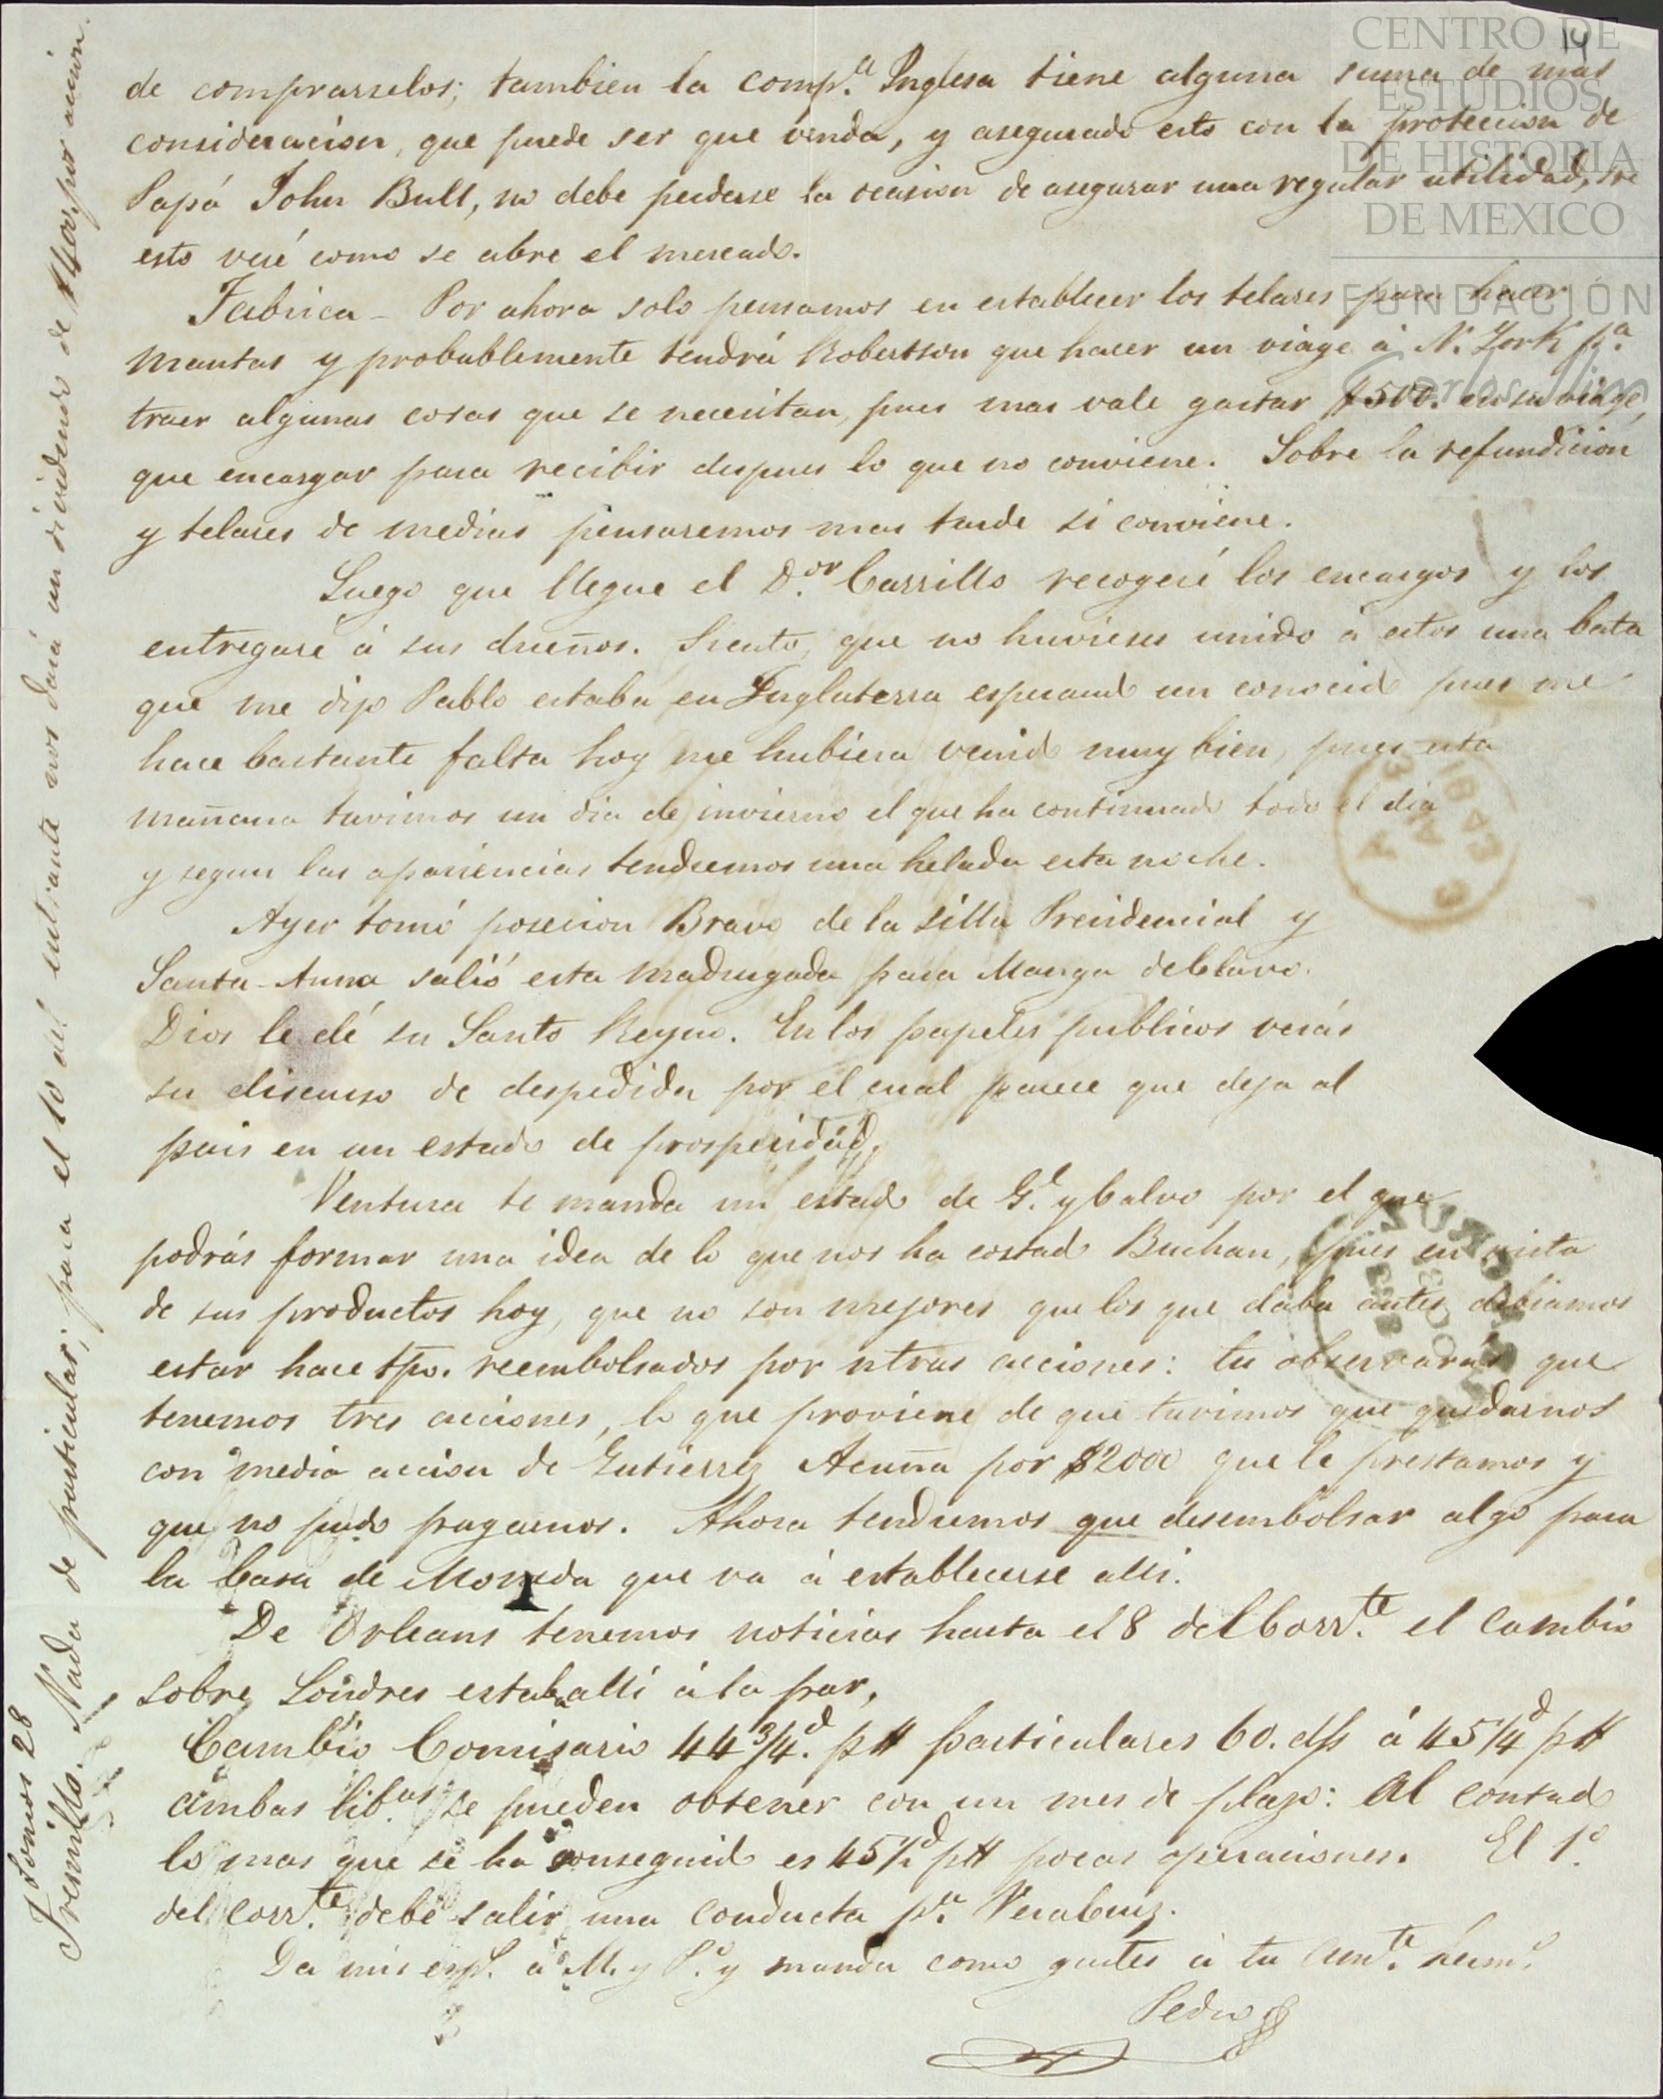 14
CENTRO DE
ESTUDIOS
DE HISTORIA
DE MEXICO
FUNDACIÓN
Carlos Slim
de comprarselos; tambien la Comp.a Inglesa tiene alguna suma de mas
consideracion, que puede ser que venda, y asegurado esto con la proteccion de
Papá John Bull, no debe perderse la ocasion de asegurar una regular utilidad, sre
esto veré como se abre el mercado.
Fabrica - Por ahora solo pensamos en establecer los telares para hacer
Mantas y probablemente tendrá Robertson que hacer un viage á N. York p.a
traer algunas cosas que se necesitan, pues mas vale gastar $500. en su viage,
que encargar para recibir despues lo que no conviene. Sobre la refundicion
y telares de medias pensaremos mas tarde si conviene.
Luego que llegue el D.or Carrillo recogeré los encargos y los
entregaré á sus dueños. Siento, que no huvieses unido á estos una bata
que me dijo Pablo estaba en Inglaterra esperand un conocid pues me
hace bastante falta hoy me hubiera venido muy bien, pues esta
mañana tuvimos un dia de invierno el que ha continuado todo el dia
y segun las apariencias tendremos una helada esta noche.
Ayer tomó posecion Bravo de la Silla Presidencial y
Santa-Anna salió esta madrugada para Manga de Clavo.
Dios le dé su Santo Reyno. En los papeles publicos verás
su discurso de despedida por el cual parece que deja al
pais en un estado de prosperidad.
Ventura te manda un estado de G. y Calvo por el que
podrás formar una idea de lo que nos ha costado Buchan, pues en vista
de sus productos hoy, que no son mejores que los que daba antes debiamos
estar hace tpo. reembolsados por ntras acciones: tu observarás que
tenemos tres acciones, lo que proviene de que tuvimos que quedarnos
con media accion de Gutierrez Acuña por $2000 que le prestamos y
que no pudo pagarnos. Ahora tendremos que desembolsar algo para
la Casa de Moneda que va á establecerse alli.
De Orleans tenemos noticias hasta el 8 del Corr.te el cambio
sobre Londres estaba alli á la par,
Cambio Comisario 44 3/4.d p$ particulares 60. d/s á 45 1/4d p$
ambas lib.as se pueden obtener con un mes de plazo: Al contado
lo mas que se ha conseguido es 45 1/2d p$ pocas operaciones. El 1.o
del corr.te debe salir una conducta p.a VeraCruz.
Da mis esp. á M. y P. y manda como gustes á tu am.te herm.o
Pedro
1843
Fresnillo. Nada de particular; para el 10 del entrante nos dará un dividendo de por accion.